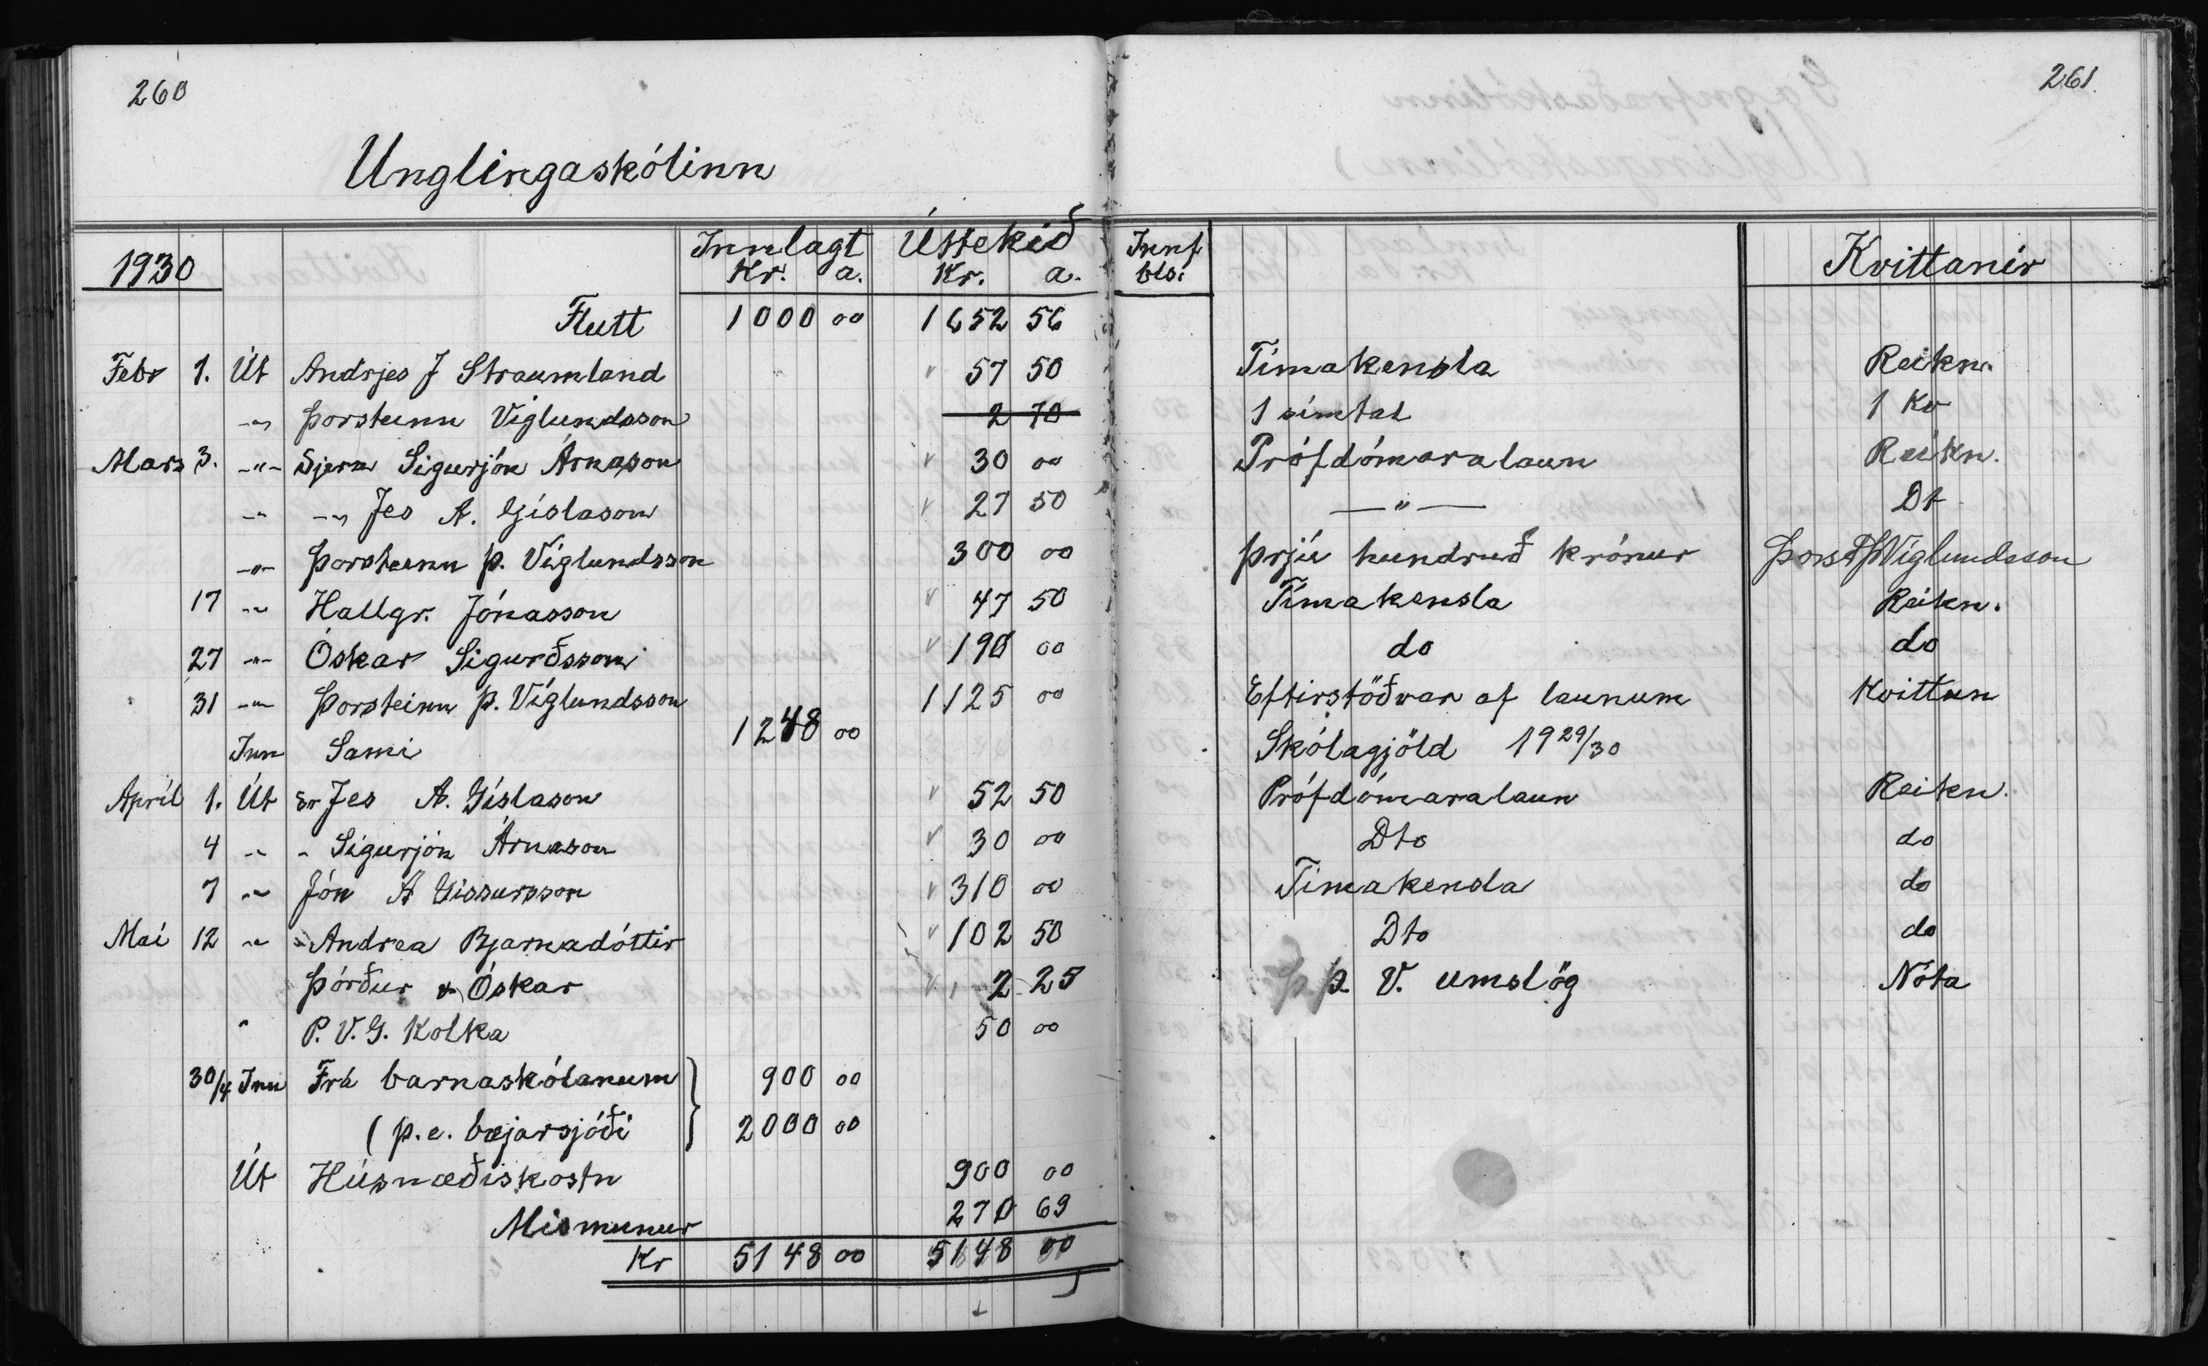 260
261.
Unglingaskólinn
1930 Innlagt Kr. a. Úttekið Kr. a. Innf. bls: Kvittanir
Flutt 1000 00 1652 56
Febr 1. Út Andrjes J Straumland 57 50 Tímakensla Reikn.
-"- Þorsteinn Víglundsson 2 70 1 símtal 1 Kv
Mars 3. -"- Sjera Sigurjón Árnason 30 00 Prófdómaralaun Reikn.
-"- -"- Jes A. Gíslason 27 50 -"- Dt
-"- Þorsteinn Þ. Víglundsson 300 00 Þrjú hundruð krónur Þorst Þ Víglundsson
17 -"- Hallgr. Jónasson 47 50 Tímakensla Reikn.
27 -"- Óskar Sigurðsson 190 00 do do
31 -"- Þorsteinn Þ. Víglundsson 1125 00 Eftirstöðvar af launum Kvittun
Inn Sami 1248 00 Skólagjöld 1929/30
Apríl 1. Út Sr Jes A. Gíslason 52 50 Prófdómaralaun Reikn.
4 -"- " Sigurjón Árnason 30 00 Dto do
7 -"- Jón Á Gissursson 310 00 Tímakensla do
Maí 12 -"- Andrea Bjarnadóttir 102 50 Dto do
Þórður & Óskar 2 25 Þ. Þ. V. umslög Nóta
" P. V. G. Kolka 50 00
30/4 Inn Frá barnaskólanum 900 00
( þ.e. bæjarsjóði 2000 00
Út Húsnæðiskostn 900 00
Mismunur 270 69
Kr 5148 00 5148 00